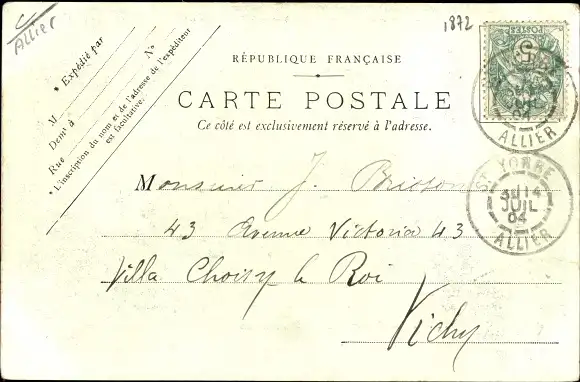 Allier
1872
* Expédié par
M
N°
Demt à
Rue
* L'inscription du nom et de l'adresse de l'expéditeur
est facultative.
RÉPUBLIQUE FRANÇAISE
CARTE POSTALE
Ce côté est exclusivement réservé à l'adresse.
POSTES
5
04
ALLIER
Monsieur J.
43 Avenue Victoria 43
Villa Choisy le Roi
Vichy
ST YORRE
14
JUIL
04
ALLIER